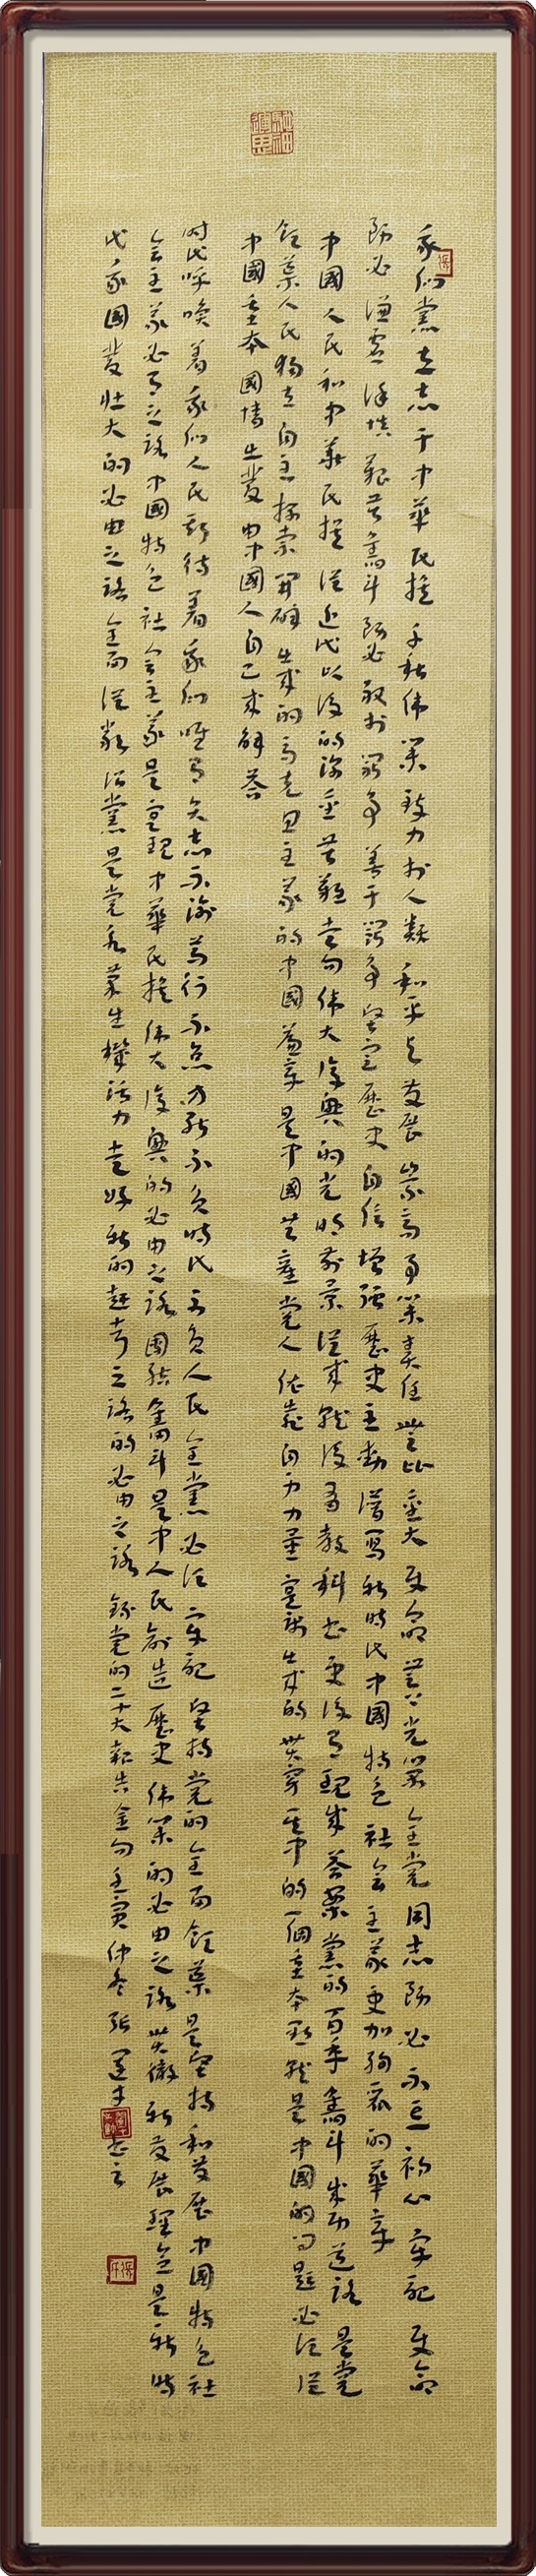 我们党立志于中华民族千秋伟业致力于人类和平与发展崇高事业责任無比重大使命無上光荣全党同志务必不忘初心牢記使命
务必谦虚谨慎艱苦奮斗务必敢於鬥争善于鬥争坚定歷史自信增强歷史主動谱写新時代中國特色社会主義更加绚丽的華章
中國人民和中華民族從近代以後的深重苦難走向偉大復興的光明前景從來就没有教科书更没有現成答案黨的百年奮斗成功道路是党
領導人民獨立自主探索開辟出来的马克思主義的中國篇章是中國共產党人依靠自身力量實踐出来的贯穿其中的一個基本點就是中國的问题必须從
中國基本國情出發由中國人自己来解答
时代呼唤着我们人民期待着我们唯有矢志不渝笃行不怠方能不负時代不负人民全黨必须牢記坚持党的全面領導是坚持和發展中國特色社
会主義必由之路中國特色社会主義是实現中華民族偉大復興的必由之路團结奮斗是中人民創造歷史偉業的必由之路贯徹新發展理念是新時
代我國發壮大的必由之路全面從嚴治黨是党永葆生機活力走好新的赶考之路的必由之路 錄党的二十大報告金句壬寅仲冬张運才书之